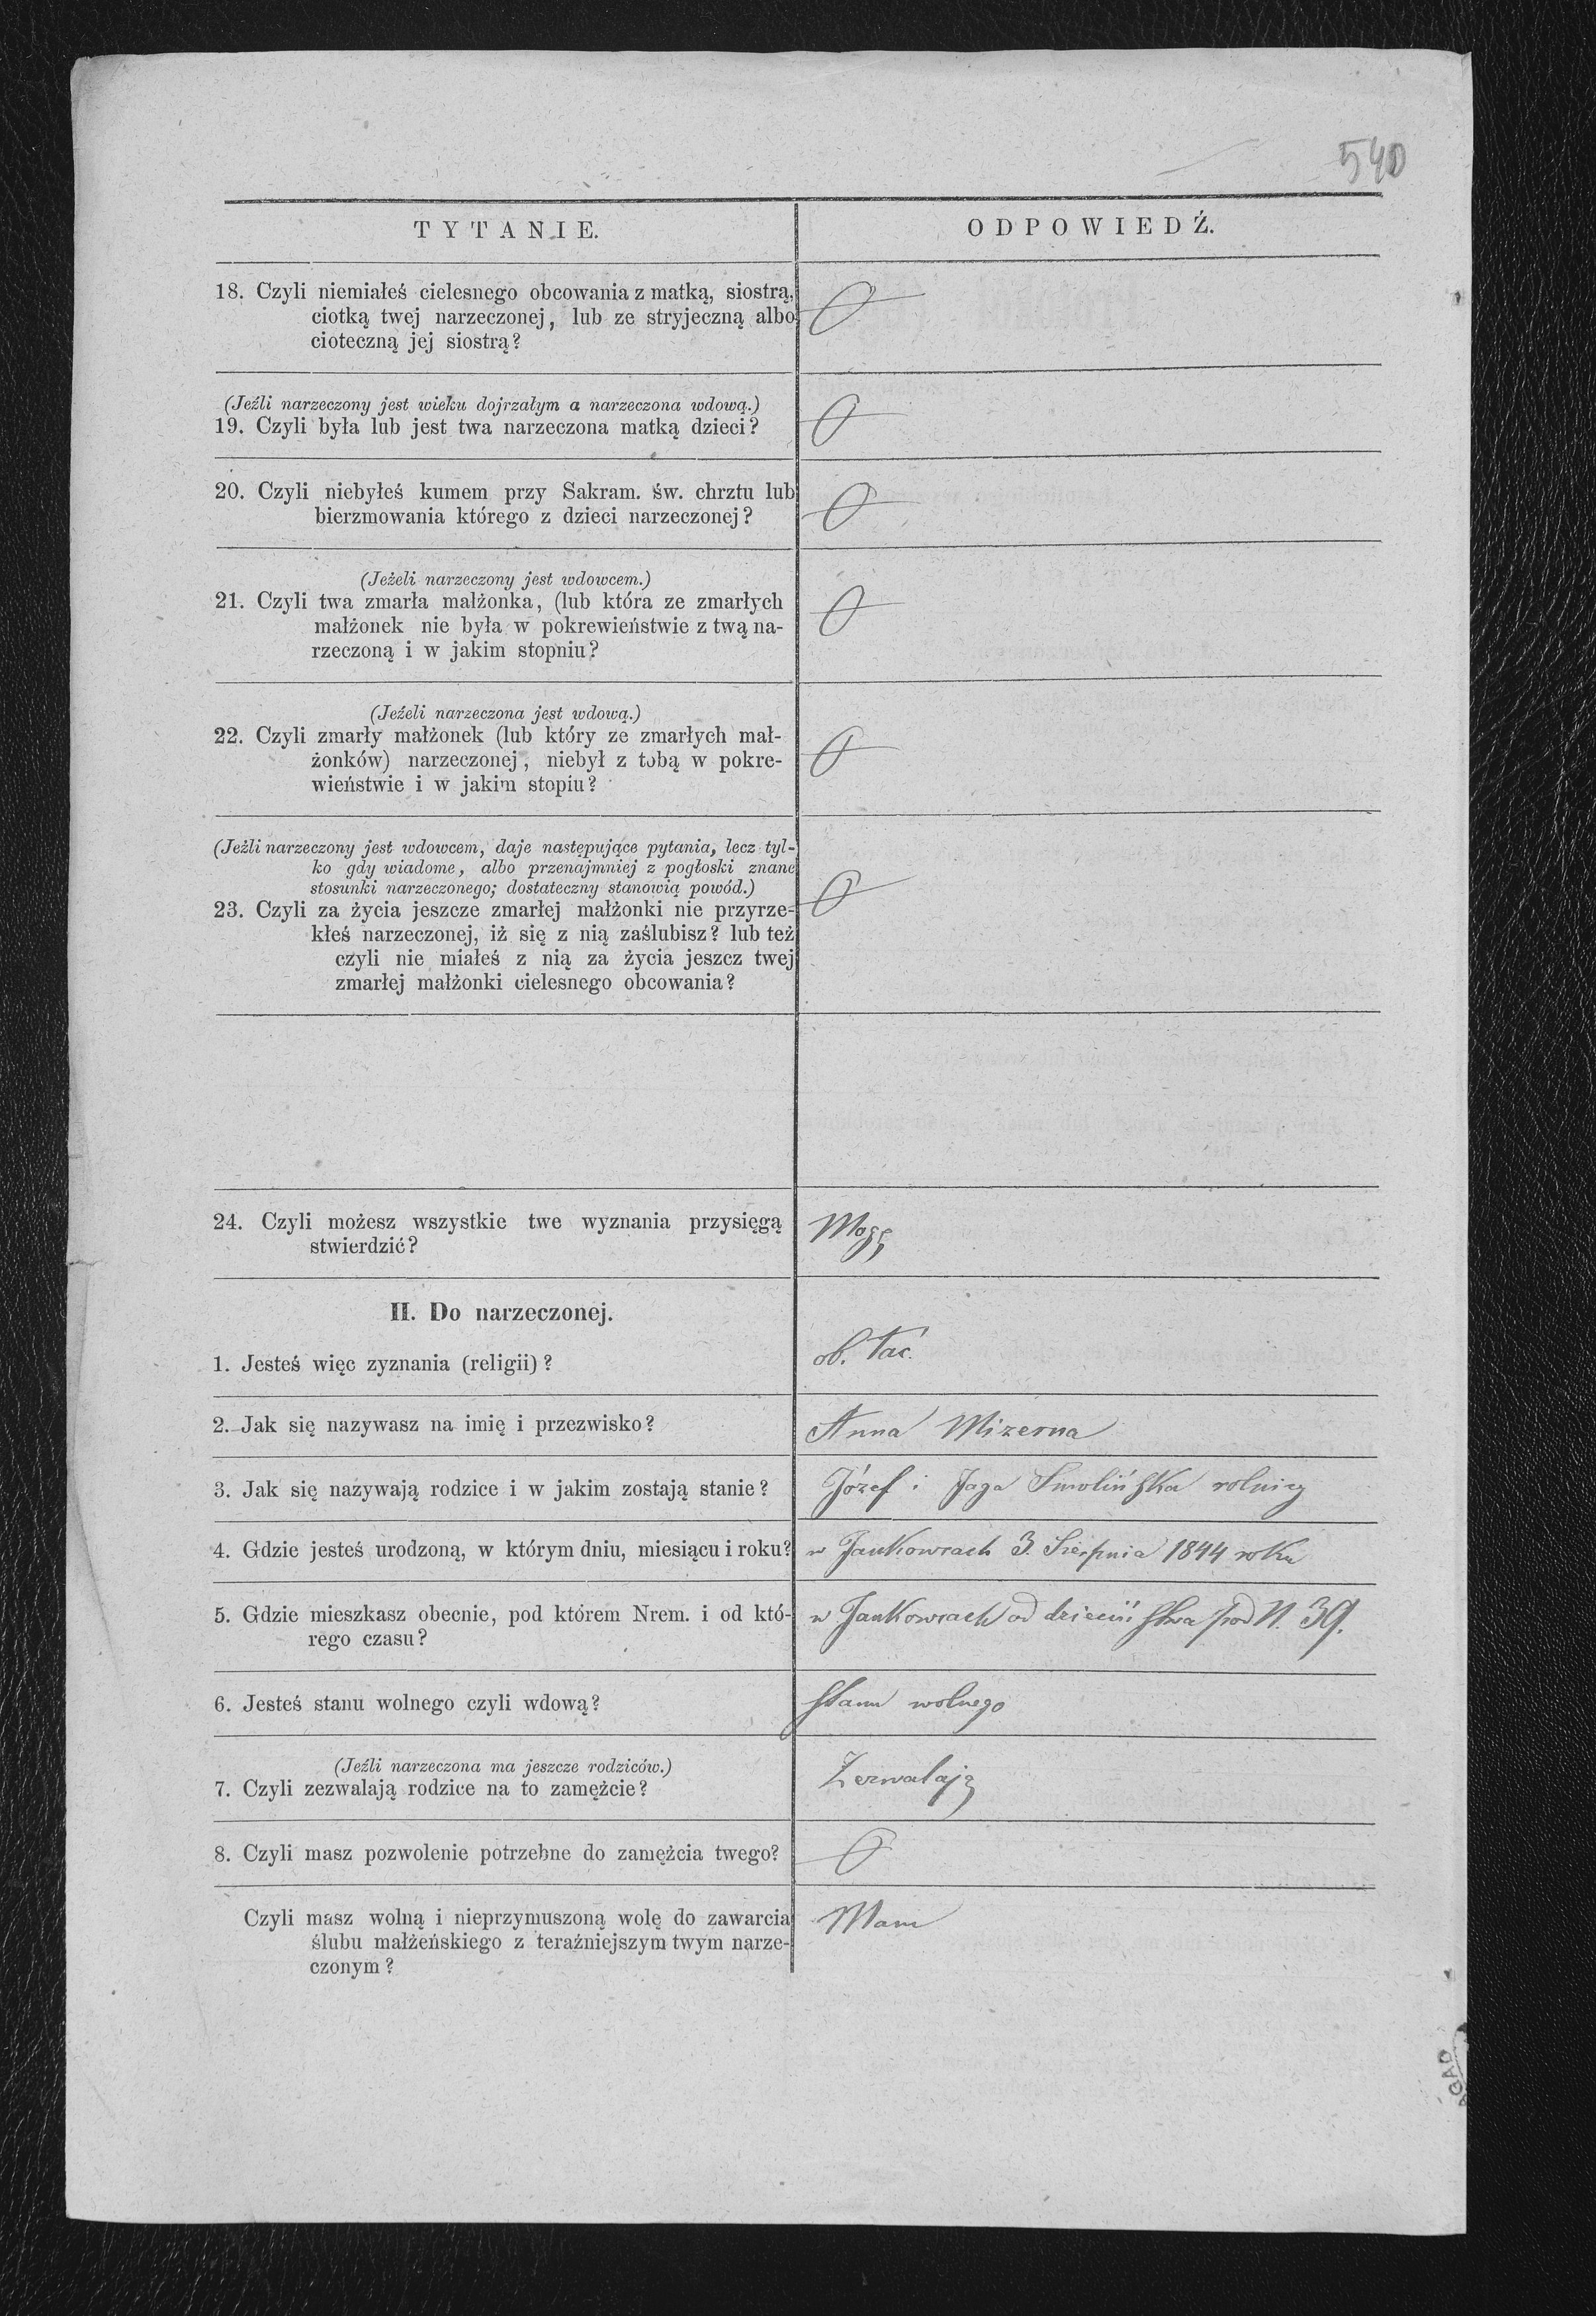 540
TYTANIE.
ODPOWIEDŹ.
18. Czyli niemiałeś cielesnego obcowania z matką, siostrą,
ciotką twej narzeczonej, lub ze stryjeczną albo
cioteczną jej siostrą?
(Jeźli narzeczony jest wieku dojrzałym a narzeczona wdową.)
19. Czyli była lub jest twa narzeczona matką dzieci?
20. Czyli niebyłeś kumem przy Sakram. św. chrztu lub
bierzmowania którego z dzieci narzeczonej?
(Jeżeli narzeczony jest wdowcem.)
21. Czyli twa zmarła małżonka, (lub która ze zmarłych
małżonek nie była w pokrewieństwie z twą na-
rzeczoną i w jakim stopniu?
(Jeżeli narzeczona jest wdową.)
22. Czyli zmarły małżonek (lub który ze zmarłych mał-
żonków) narzeczonej, niebył z tobą w pokre-
wieństwie i w jakim stopiu?
(Jeźli narzeczony jest wdowcem, daje następujące pytania, lecz tyl-
ko gdy wiadome, albo przenajmniej z pogłoski znane
stosunki narzeczonego; dostateczny stanowią powód.)
23. Czyli za życia jeszcze zmarłej małżonki nie przyrze-
kłeś narzeczonej, iż się z nią zaślubisz? lub też
czyli nie miałeś z nią za życia jeszcz twej
zmarłej małżonki cielesnego obcowania?
24. Czyli możesz wszystkie twe wyznania przysięgą
stwierdzić?
Mogę
II. Do narzeczonej.
1. Jesteś więc zyznania (religii)?
ob. łac.
2. Jak się nazywasz na imię i przezwisko?
Anna Mizerna
3. Jak się nazywają rodzice i w jakim zostają stanie?
Józef i Jaga Smolińska rolnicy
4. Gdzie jesteś urodzoną, w którym dniu, miesiącu i roku?
w Jankowcach 3. Sierpnia 1844 roku
5. Gdzie mieszkasz obecnie, pod którem Nrem. i od któ-
rego czasu?
w Jankowcach od dzieciństwa pod N. 39.
6. Jesteś stanu wolnego czyli wdową?
stanu wolnego
(Jeźli narzeczona ma jeszcze rodziców.)
7. Czyli zezwalają rodzice na to zamężcie?
Zezwalają
8. Czyli masz pozwolenie potrzebne do zamężcia twego?
Czyli masz wolną i nieprzymuszoną wolę do zawarcia
ślubu małżeńskiego z teraźniejszym twym narze-
czonym?
Mam
AGAD